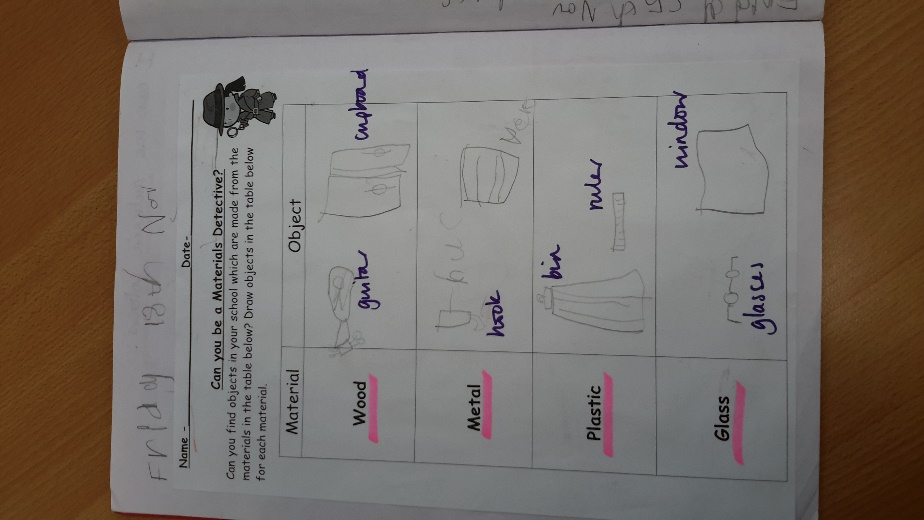 Friday 18th Nov
Name - Date-
Can you be a Materials Detective?
Can you find objects in your school which are made from the
materials in the table below? Draw objects in the table below
for each material.
Material Object
Wood guitar cupboard
Metal hook
Plastic bin ruler
Glass glasses window